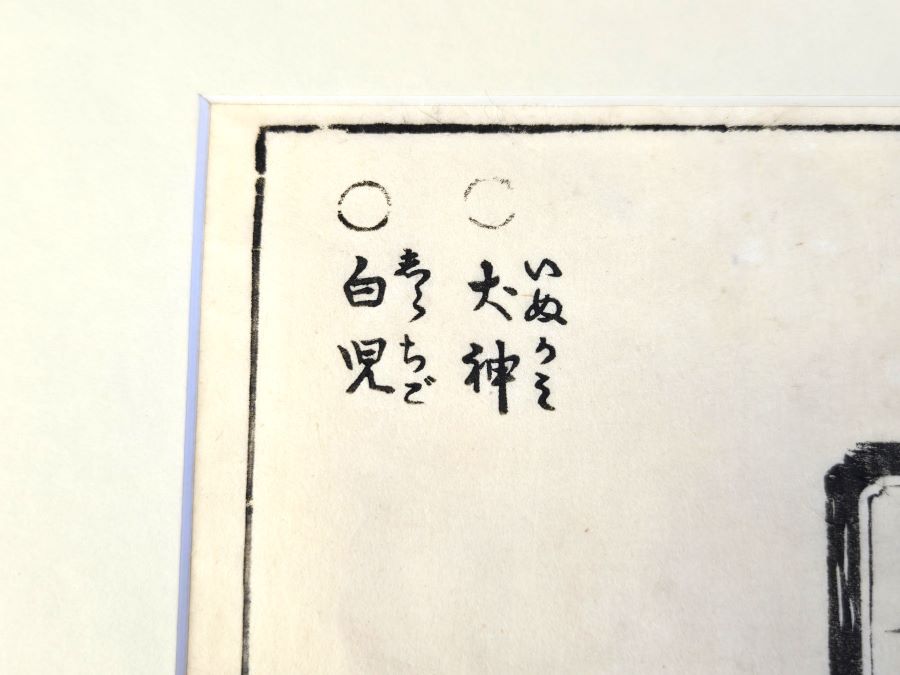 ○犬神
いぬがみ
○白児
しらちご